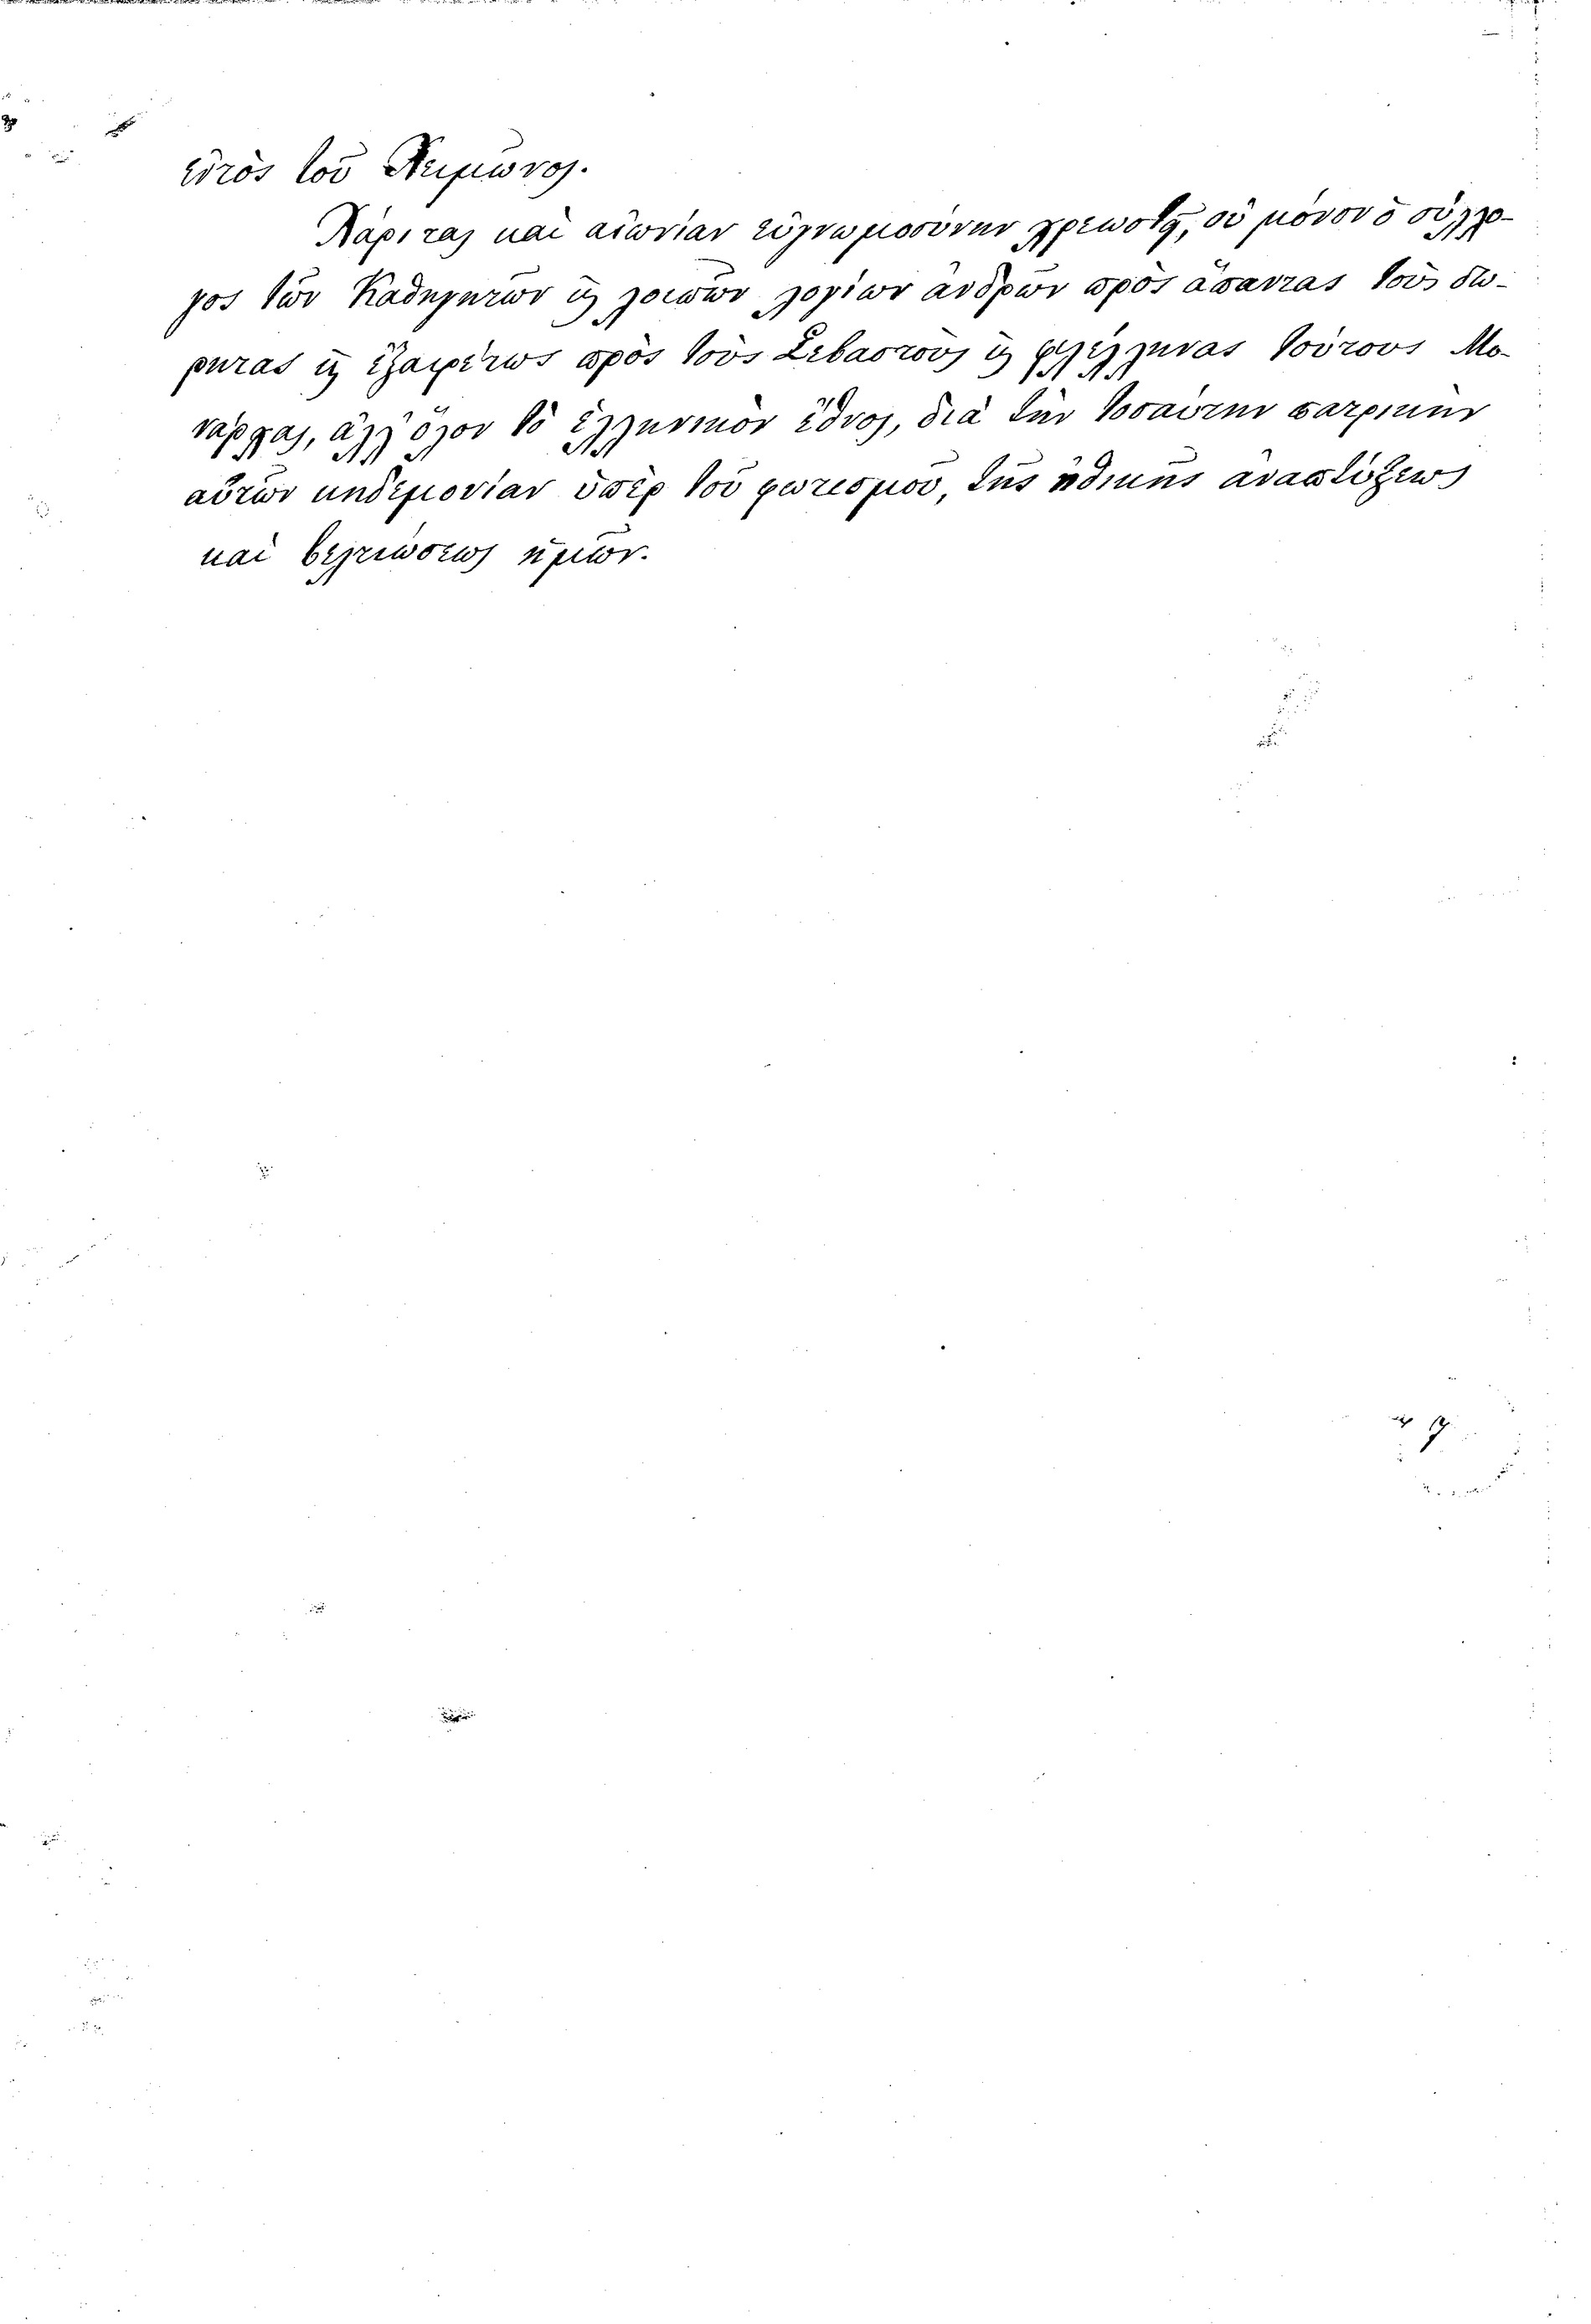 ἐντὸς τοῦ Χειμῶνος.
Χάριτας καὶ αἰωνίαν εὐγνωμοσύνην χρεωστεῖ, οὐ μόνον ὁ σύλλο-
γος τῶν Καθηγητῶν καὶ λοιπῶν λογίων ἀνδρῶν πρὸς ἅπαντας τοὺς δω-
ρητὰς καὶ ἐξαιρέτως πρὸς τοὺς Σεβαστοὺς καὶ φιλέλληνας τούτους Μο-
νάρχας, ἀλλ' ὅλον τὸ ἑλληνικὸν ἔθνος, διὰ τὴν τοιαύτην πατρικὴν
αὐτῶν κηδεμονίαν ὑπὲρ τοῦ φωτισμοῦ, τῆς ἠθικῆς ἀναπτύξεως
καὶ βελτιώσεως ἡμῶν.